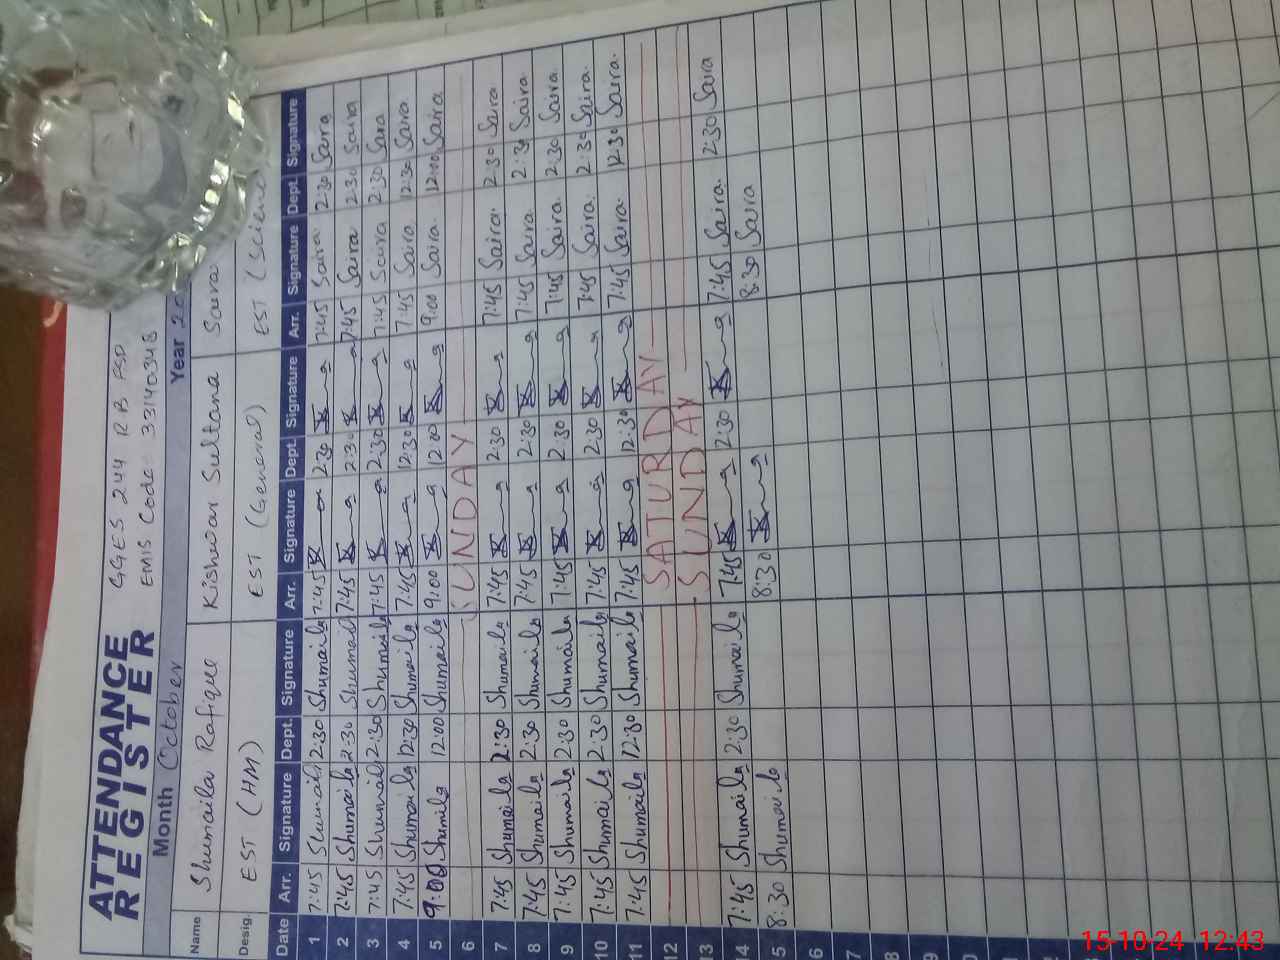 ATTENDANCE REGISTER
GGES 244 R B FSD
EMIS Code: 33140348
Month October Year 20
Name Shumaila Rafique Kishwar Sultana Saira
Desig. EST (HM) EST (General) EST (Science
Date Arr. Signature Dept. Signature Arr. Signature Dept. Signature Arr. Signature Dept. Signature
1 7:45 Shumaila 2:30 Shumaila 7:45 2:30 7:45 Saira 2:30 Saira
2 7:45 Shumaila 2:30 Shumaila 7:45 2:30 7:45 Saira 2:30 Saira
3 7:45 Shumaila 2:30 Shumaila 7:45 2:30 7:45 Saira 2:30 Saira
4 7:45 Shumaila 12:30 Shumaila 7:45 12:30 7:45 Saira 12:30 Saira
5 9:00 Shumila 12:00 Shumaila 9:00 12:00 9:00 Saira 12:00 Saira
6 SUNDAY
7 7:45 Shumaila 2:30 Shumaila 7:45 2:30 7:45 Saira. 2:30 Saira.
8 7:45 Shumaila 2:30 Shumaila 7:45 2:30 7:45 Saira. 2:30 Saira.
9 7:45 Shumaila 2:30 Shumaila 7:45 2:30 7:45 Saira. 2:30 Saira.
10 7:45 Shumaila 2:30 Shumaila 7:45 2:30 7:45 Saira. 2:30 Saira.
11 7:45 Shumaila 12:30 Shumaila 7:45 12:30 7:45 Saira. 12:30 Saira.
12 SATURDAY
13 SUNDAY
14 7:45 Shumaila 2:30 Shumaila 7:45 2:30 7:45 Saira. 2:30 Saira
5 8:30 Shumaila 8:30 8:30 Saira
6
7
8
9
0
15-10-24 12:43